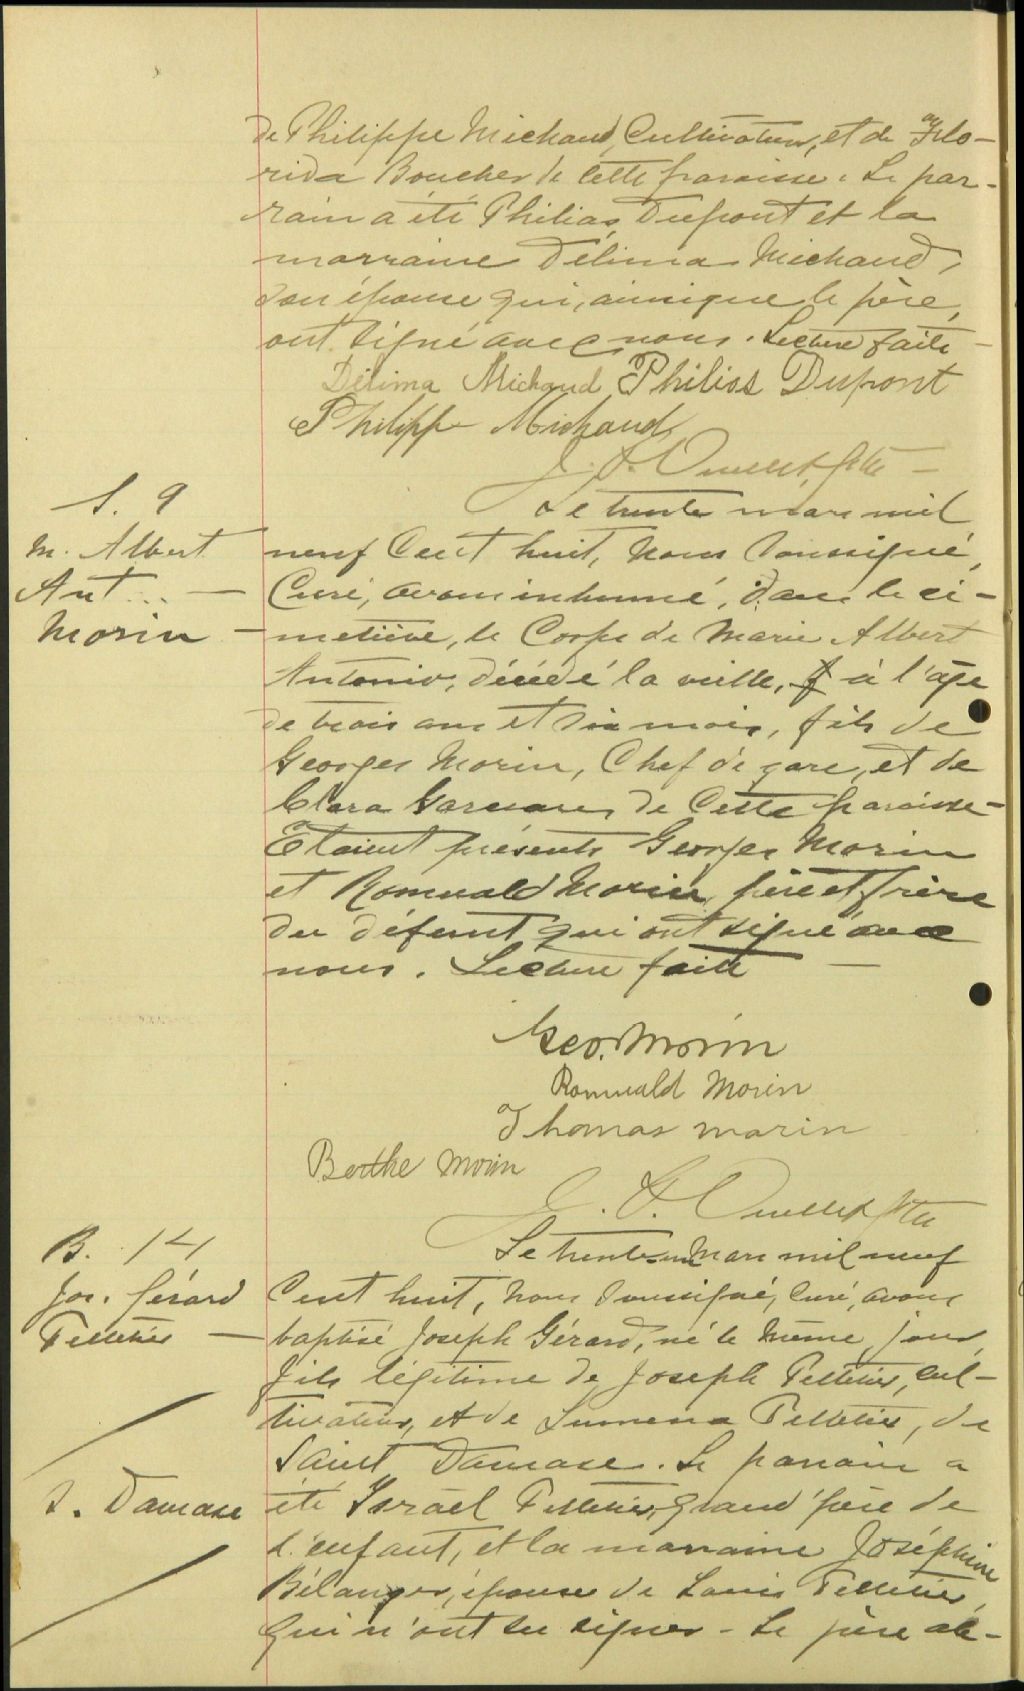 de Philippe Michaud, Cultivateur, et de Flo-
rida Boucher de cette paroisse. Le par-
rain a été Philias Dupont et la
marraine Délima Michaud,
son épouse qui, ainsi que le père,
ont signé avec nous. Lecture faite
Délima Michaud Philias Dupont
Philippe Michaud
J. Ouellet, ptre
S. 9
Le trente mars mil
M. Albert
neuf cent huit, nous soussigné,
Ant...
Curé, avons inhumé, dans le ci-
Morin
metière, le Corps de Marie Albert
Antonio, décédé la veille, à l'âge
de trois ans et six mois, fils de
Georges Morin, Chef de gare, et de
Clara de cette paroisse-
Etaient présents Georges Morin
et Romuald Morin, père et frère
du défunt qui ont signé avec
nous. Lecture faite
Geo. Morin
Romuald Morin
Thomas marin
Berthe Morin
J. Ouellet ptre
B. 14
Le trente-un Mars mil neuf
Jos. Gérard
Cent huit, nous soussigné, Curé, avons
Pelletier
baptisé Joseph Gérard, né le même jour,
fils légitime de Joseph Pelletier, cul-
tivateur, et de Pelletier, de
Saint Damase. Le parrain a
S. Damase
été Israël Pelletier, grand'père de
l'enfant, et la marraine Joséphine
Bélanger, épouse de Louis Pelletier,
qui n'ont su signer - Le père ab-